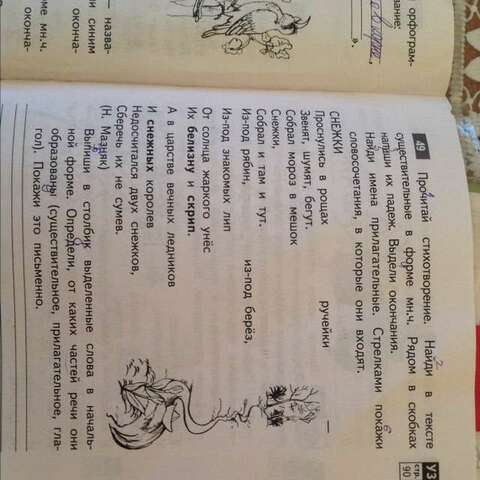 орфограм-
вание:
».
— назва-
и синим
оконча-
рме мн.ч.
оконча-
УЗ
стр.
90
49 Прочитай стихотворение. Найди в тексте
существительные в форме мн.ч. Рядом в скобках
напиши их падеж. Выдели окончания.
Найди имена прилагательные. Стрелками покажи
словосочетания, в которые они входят.
СНЕЖКИ
Проснулись в рощах ручейки —
Звенят, шумят, бегут.
Собрал мороз в мешок
Снежки,
Собрал и там и тут.
Из-под рябин, из-под берёз,
Из-под знакомых лип
От солнца жаркого унёс
Их белизну и скрип.
А в царстве вечных ледников
И снежных королев
Недосчитался двух снежков,
Сберечь их не сумев.
(Н. Мазняк)
Выпиши в столбик выделенные слова в началь-
ной форме. Определи, от каких частей речи они
образованы (существительное, прилагательное, гла-
гол). Покажи это письменно.